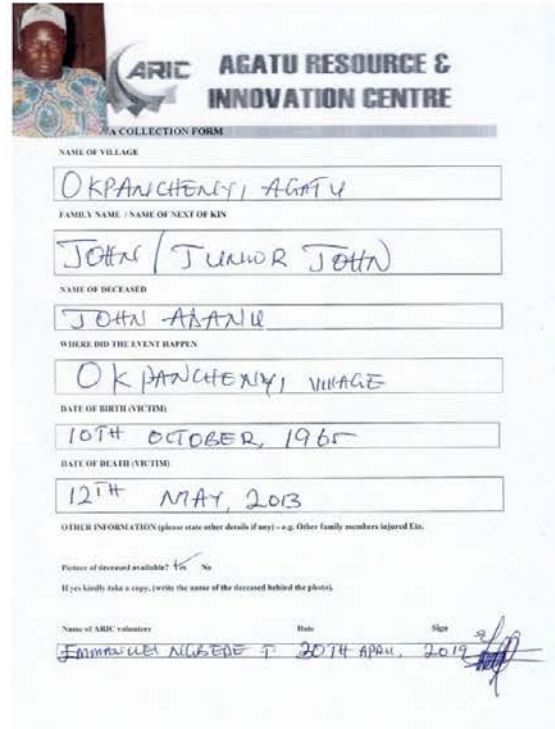 ARIC
AGATU RESOURCE &
INNOVATION CENTRE
A COLLECTION FORM
NAME OF VILLAGE
OKPANCHENYI AGATU
FAMILY NAME / NAME OF NEXT OF KIN
JOHN / JUNIOR JOHN
NAME OF DECEASED
JOHN ABANU
WHERE DID THE EVENT HAPPEN
OKPANCHENYI VILLAGE
DATE OF BIRTH (VICTIM)
10TH OCTOBER, 1965
DATE OF DEATH (VICTIM)
12TH MAY, 2013
OTHER INFORMATION (please state other details if any) – e.g. Other family members injured Etc.
Picture of deceased available? Yes No
If yes kindly take a copy, (write the name of the deceased behind the photo).
Name of ARIC volunteer Date Sign
EMMANUEL NGBEDE T 20TH APRIL, 2019